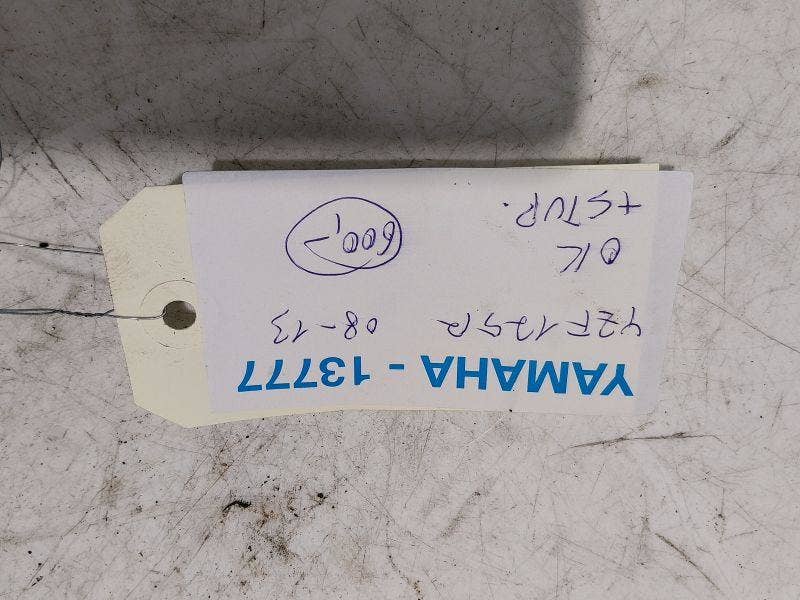 YAMAHA - 13777
YZF125R 08-13
OK 600,-
+STUP.